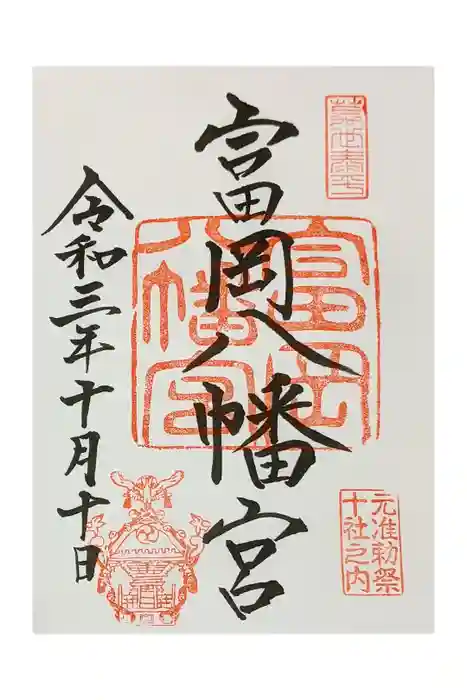 萬世泰平
富岡八幡宮
富岡
八幡宮
元准勅祭
十社之内
令和三年十月十日